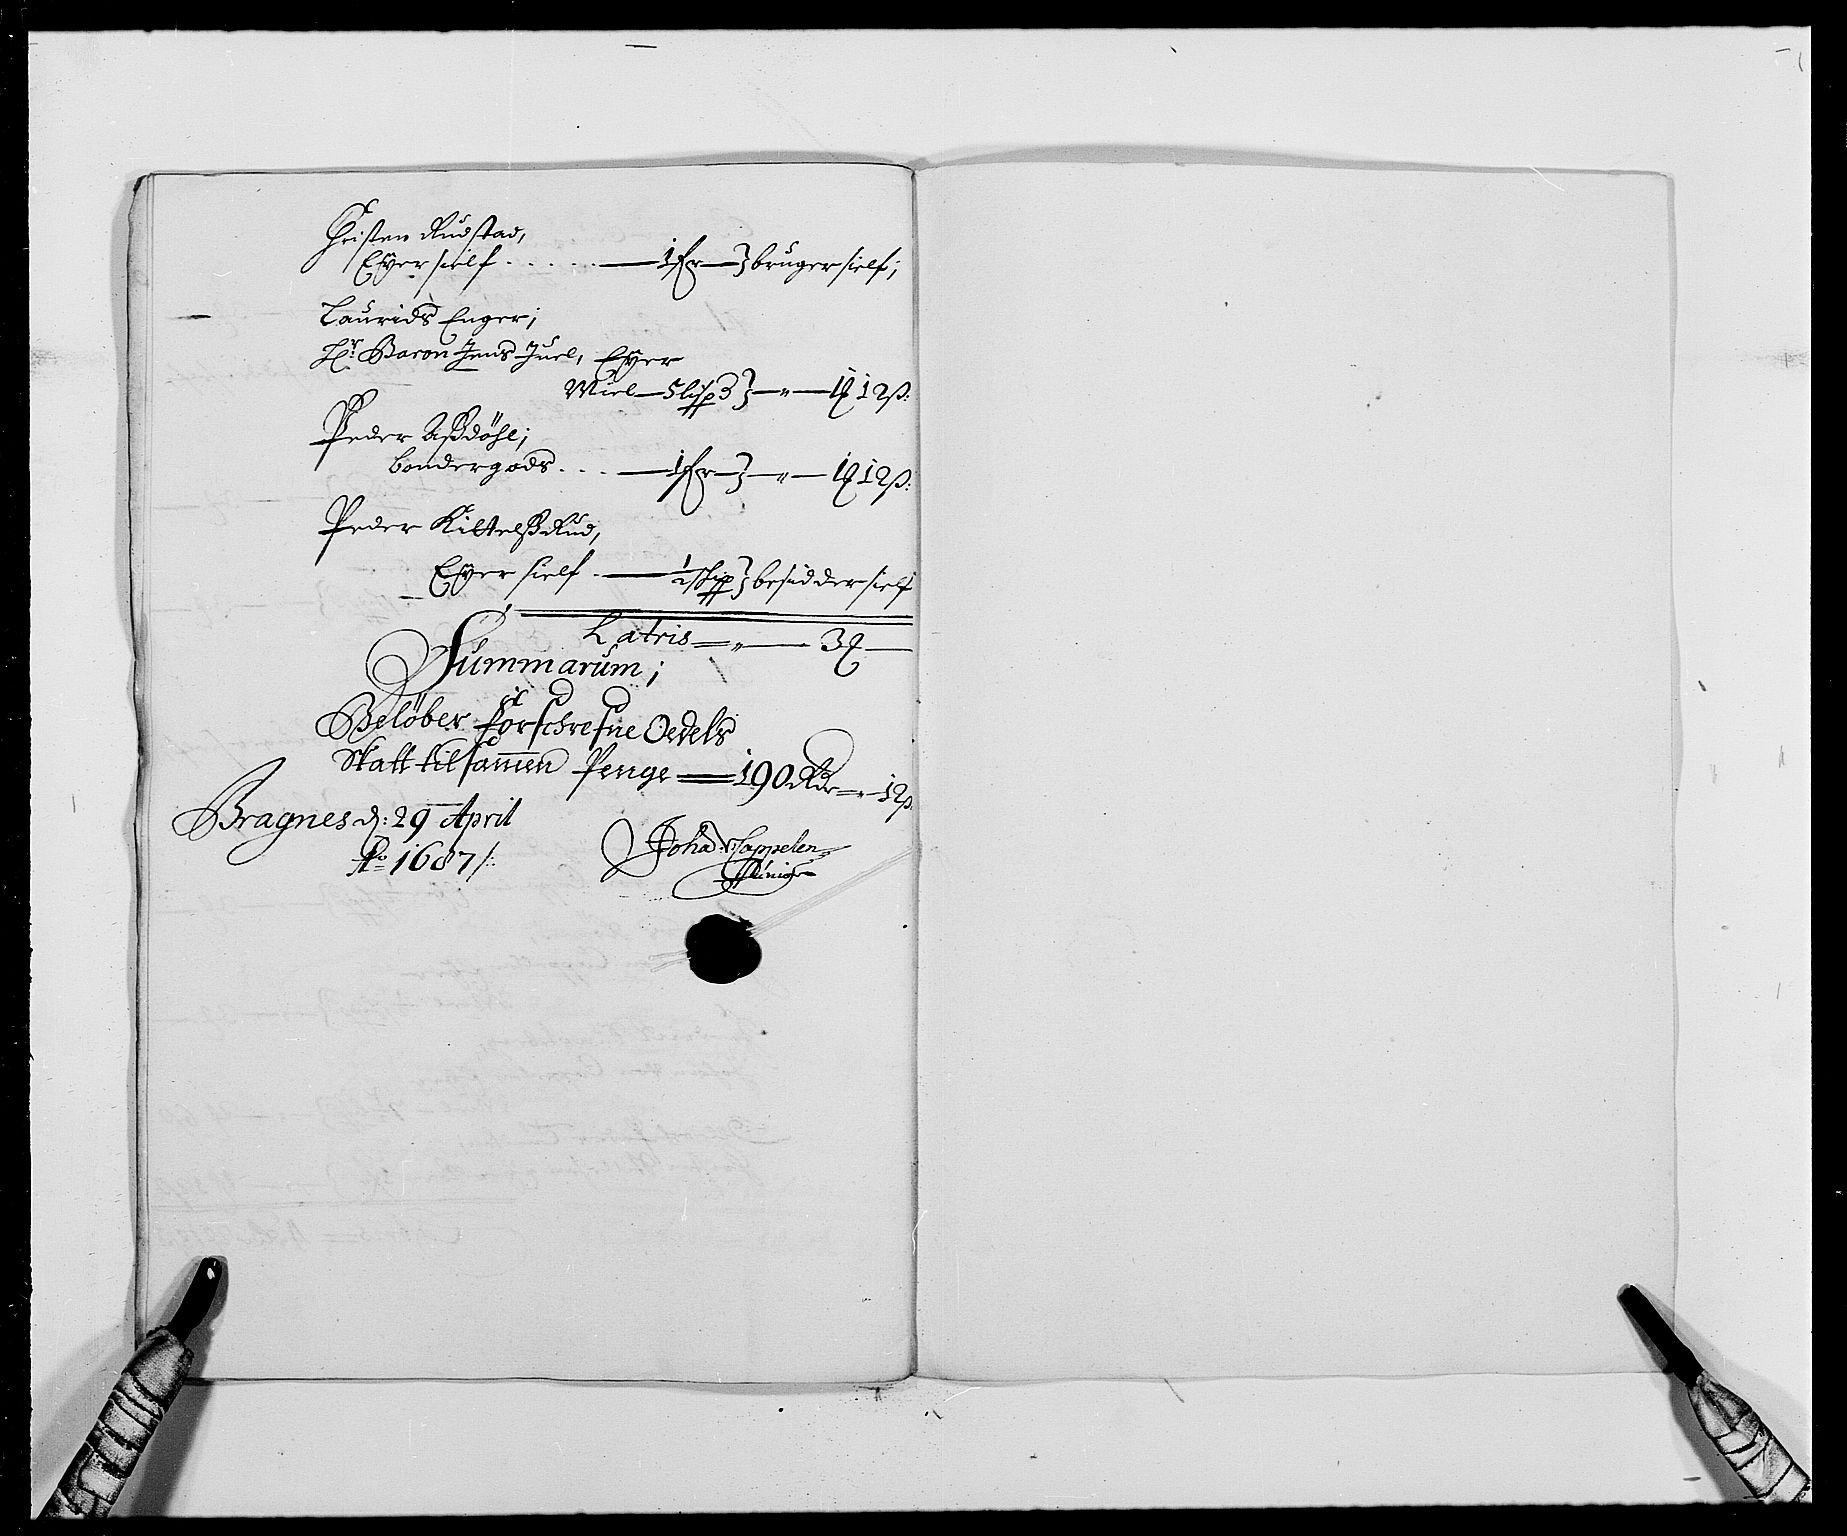 Christen Rudstad,
Eyer sielf . . . . . — 1 fr — } bruger sielf;
Laurids Enger;
Hr: Baron Jens Juel, Eyer
Miel — 5 lispd } — " — 1 12 ß:
Peder Aßdöhl;
bondergods . . . — 1 fr — } — " — 1 12 ß:
Peder KittelßRud,
Eyer sielf . — ½ skipp } besidder sielf
Latris — " — 3 —
Summarum;
Belöber forschrefne Oedels
Skatt tilsammen Penge — 190 Rdr — " — 12 ß
Bragnes d: 29 April
Ao 1687 /:
Joha: v Cappelen
Junior